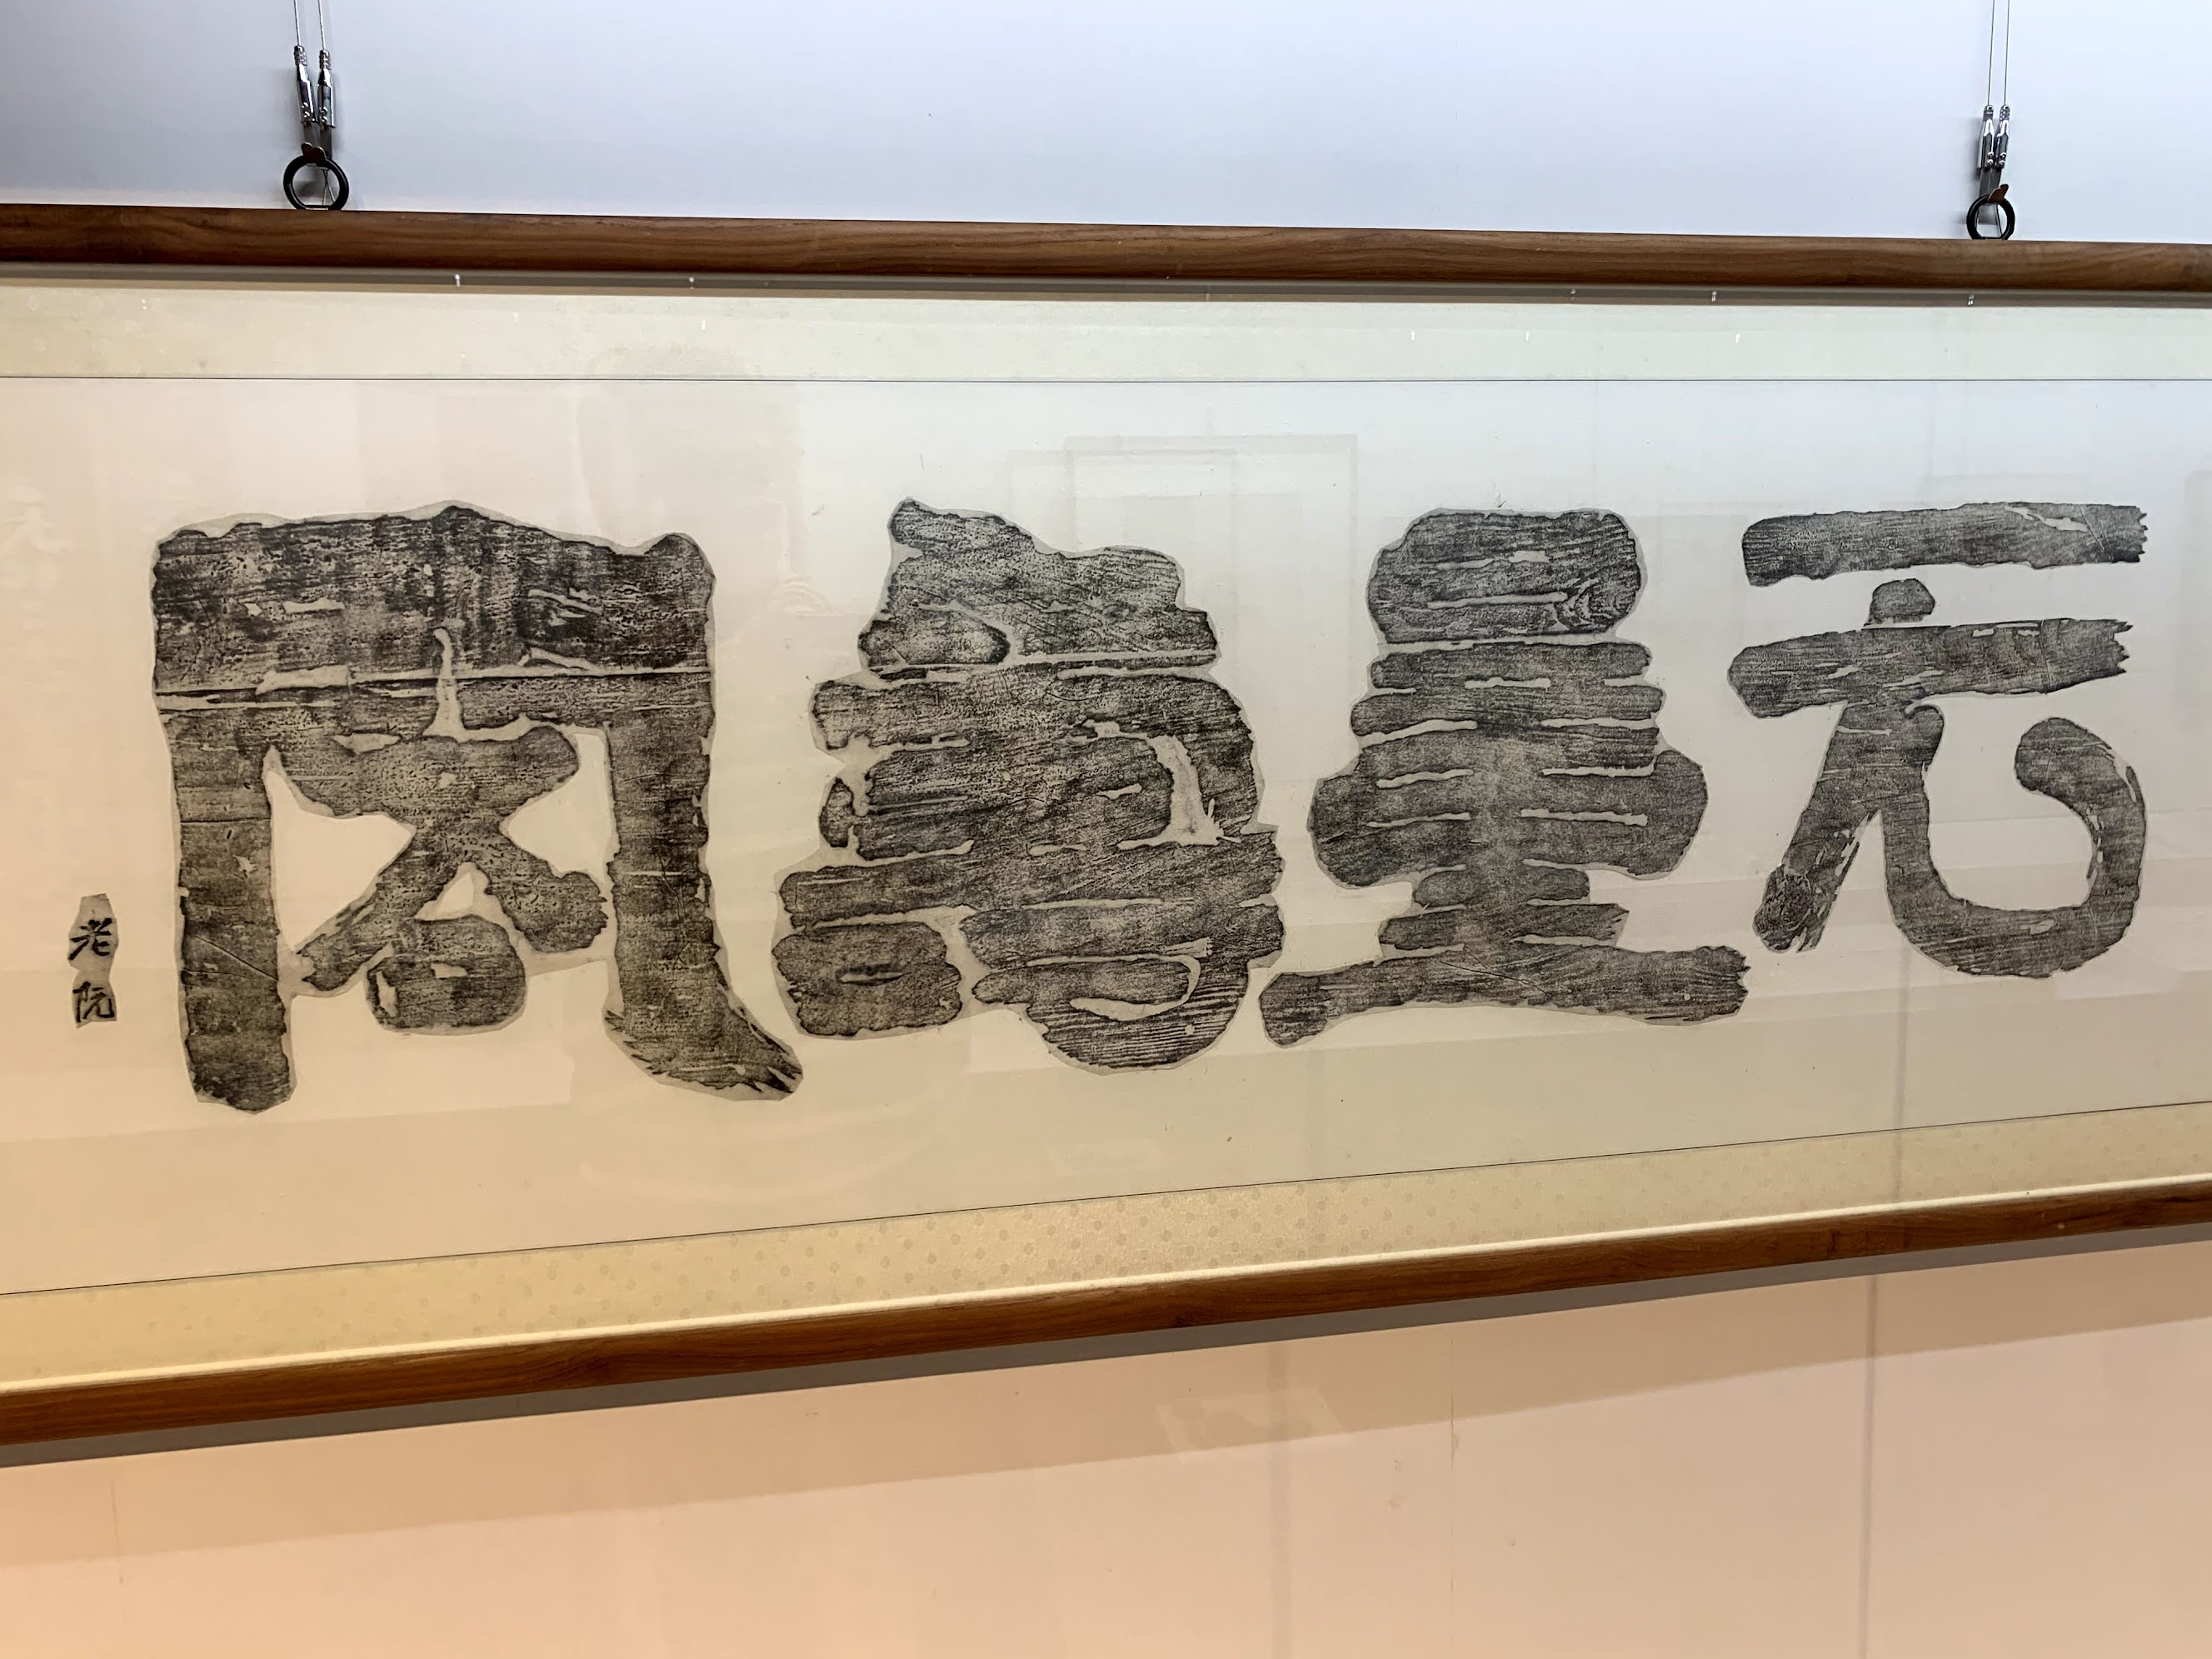 无量壽閣
老阮